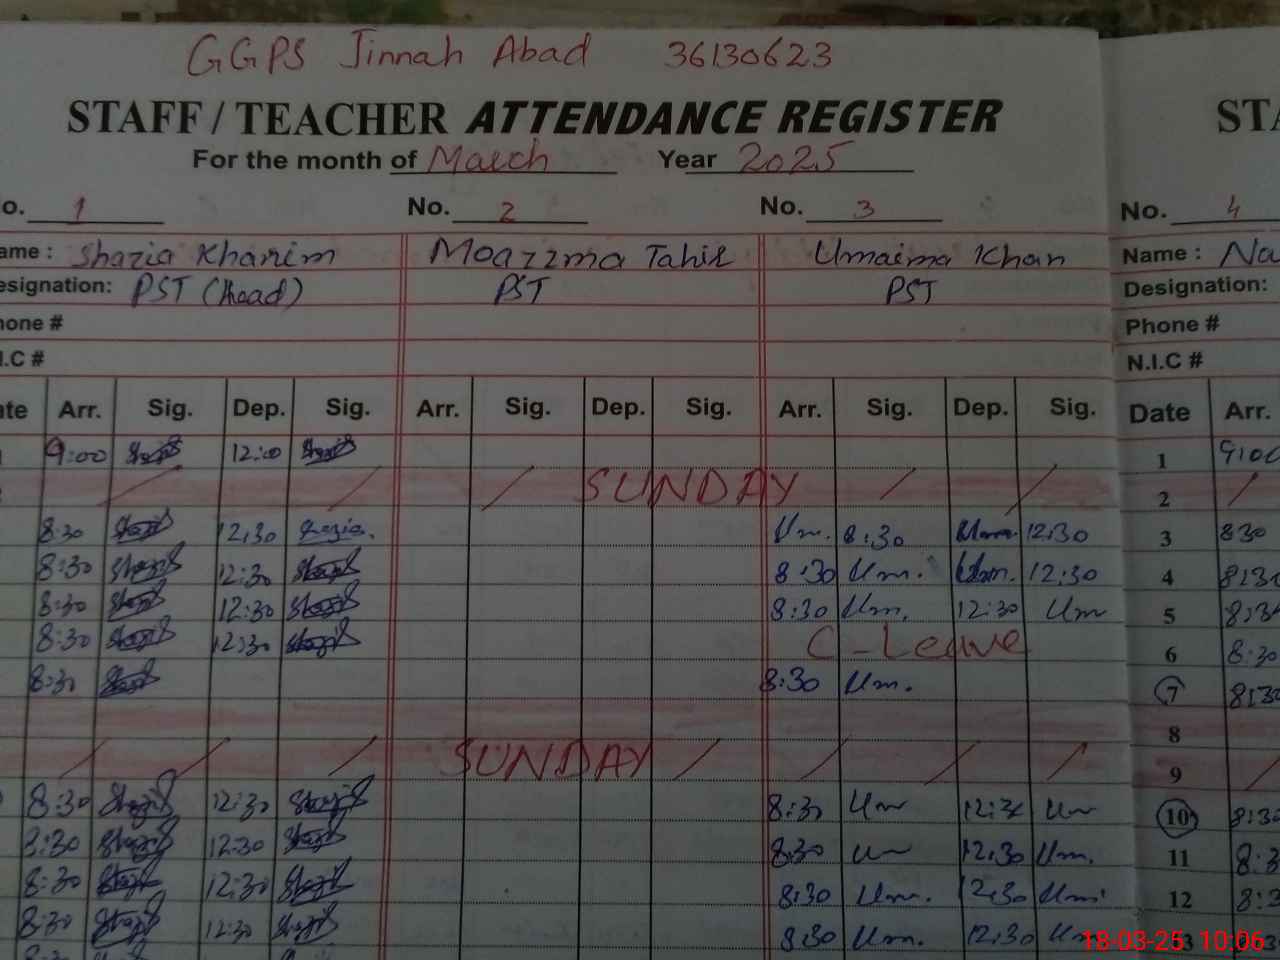 GGPS Jinnah Abad 36130623
STAFF / TEACHER ATTENDANCE REGISTER STA
For the month of March Year 2025
No. 1 No. 2 No. 3 No. 4
ame : Shazia Khanim Moazzma Tahir Umaima Khan Name : Na
esignation: PST (Head) PST PST Designation:
hone # Phone #
I.C # N.I.C #
ate Arr. Sig. Dep. Sig. Arr. Sig. Dep. Sig. Arr. Sig. Dep. Sig. Date Arr.
9:00 12:00 1 9:00
SUNDAY 2
8:30 12:30 Shazia. Um. 8:30 Um. 12:30 3 8:30
8:30 12:30 8:30 Um. Um. 12:30 4 8:30
8:30 12:30 8:30 Um. 12:30 Um 5 8:30
8:30 12:30 C-Leave 6 8:30
8:30 8:30 Um. 7 8:30
8
SUNDAY 9
8:30 12:30 8:30 Um 12:30 Um 10 8:30
8:30 12:30 8:30 Um 12:30 Um. 11 8:3
8:30 12:30 8:30 Um. 12:30 Um. 12 8:3
8:30 12:30 8:30 Um. 12:30 Um
18-03-25 10:06